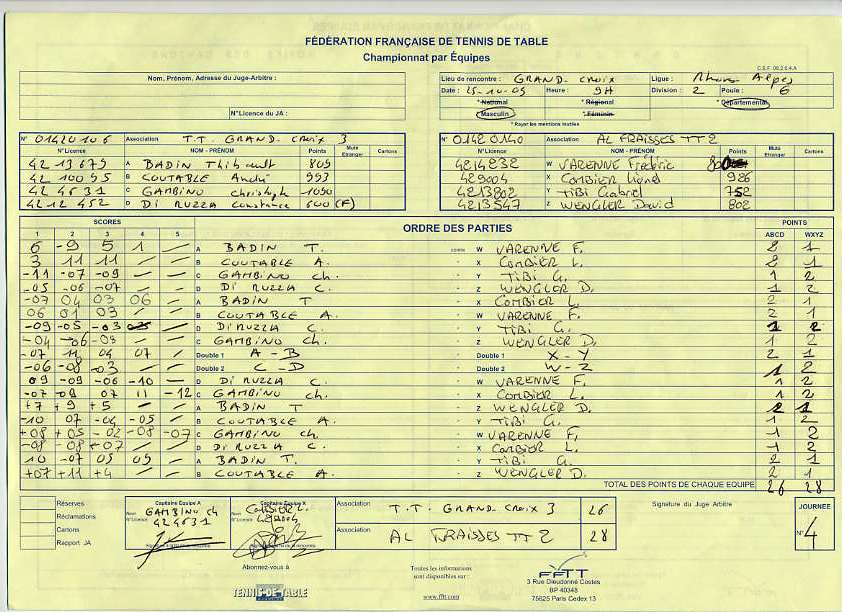 FÉDÉRATION FRANÇAISE DE TENNIS DE TABLE
Championnat par Équipes
C.S.F. 06.2.0.4.A
Nom, Prénom, Adresse du Juge-Arbitre :
N°Licence du JA :
Lieu de rencontre : GRAND-CROIX Ligue : Rhône Alpes
Date : 25-10-09 Heure : 9H Division : 2 Poule : 6
* National * Régional * Départemental
* Masculin * Féminin
* Rayer les mentions inutiles
N° 01420106 Association T.T. GRAND-CROIX 3
N°Licence NOM - PRÉNOM Points Mute Etranger Cartons
4213679 A BADIN Thibault 809
4210095 B COUTABLE André 993
424631 C GAMBINO Christoph 1050
4212452 D DI RUZZA Constance 600 (F)
N° 01420140 Association AL FRAISSES TT 2
N°Licence NOM - PRÉNOM Points Mute Etranger Cartons
4214232 W VARENNE Frédéric
429004 X COMBIER Lionel 926
4213802 Y TIBI Gabriel 752
4213547 Z WENGLER David 802
SCORES ORDRE DES PARTIES POINTS
1 2 3 4 5 ABCD WXYZ
6 -9 5 1 / A BADIN T. contre W VARENNE F. 2 1
3 11 11 / / B COUTABLE A. - X COMBIER L. 2 1
-11 -07 -09 / / C GAMBINO Ch. - Y TIBI G. 1 2
-05 -06 -07 / / D DI RUZZA C. - Z WENGLER D. 1 2
-07 04 03 06 / A BADIN T - X COMBIER L. 2 1
06 01 03 / / B COUTABLE A. - W VARENNE F. 2 1
-09 -05 -03 / D DI RUZZA C. - Y TIBI G. 1 2
-04 -06 -09 / / C GAMBINO Ch. - Z WENGLER D. 1 2
-07 11 09 07 / Double 1 A - B - Double 1 X - Y 2 1
-06 -08 -03 / / Double 2 C - D - Double 2 W - Z 1 2
09 -09 -06 -10 - D DI RUZZA C. - W VARENNE F. 1 2
-07 -09 07 11 -12 C GAMBINO Ch. - X COMBIER L. 1 2
+7 9 +5 / / A BADIN T - Z WENGLER D. 2 1
-10 07 -04 -05 / B COUTABLE A. - Y TIBI G. 1 2
+08 +05 -02 -08 -07 C GAMBINO Ch. - W VARENNE F. 1 2
-08 -08 +07 / / D DI RUZZA C. - X COMBIER L. 1 2
10 -07 05 09 A BADIN T. - Y TIBI G. 2 1
+07 +11 +4 / / B COUTABLE A. - Z WENGLER D. 2 1
TOTAL DES POINTS DE CHAQUE EQUIPE 26 28
Réserves
Réclamations
Cartons
Rapport JA
Capitaine Equipe A
Nom GAMBINO Ch
N°Licence 424631
Capitaine Equipe X
Nom COMBIER L.
N°Licence 429004
Association T.T. GRAND-CROIX 3 26
Association AL FRAISSES TT 2 28
Signature du Juge Arbitre
JOURNEE
N° 4
Abonnez-vous à
TENNIS-DE-TABLE
Toutes les informations
sont disponibles sur :
www.fftt.com
FFTT
3 Rue Dieudonné Costes
BP 40348
75625 Paris Cedex 13